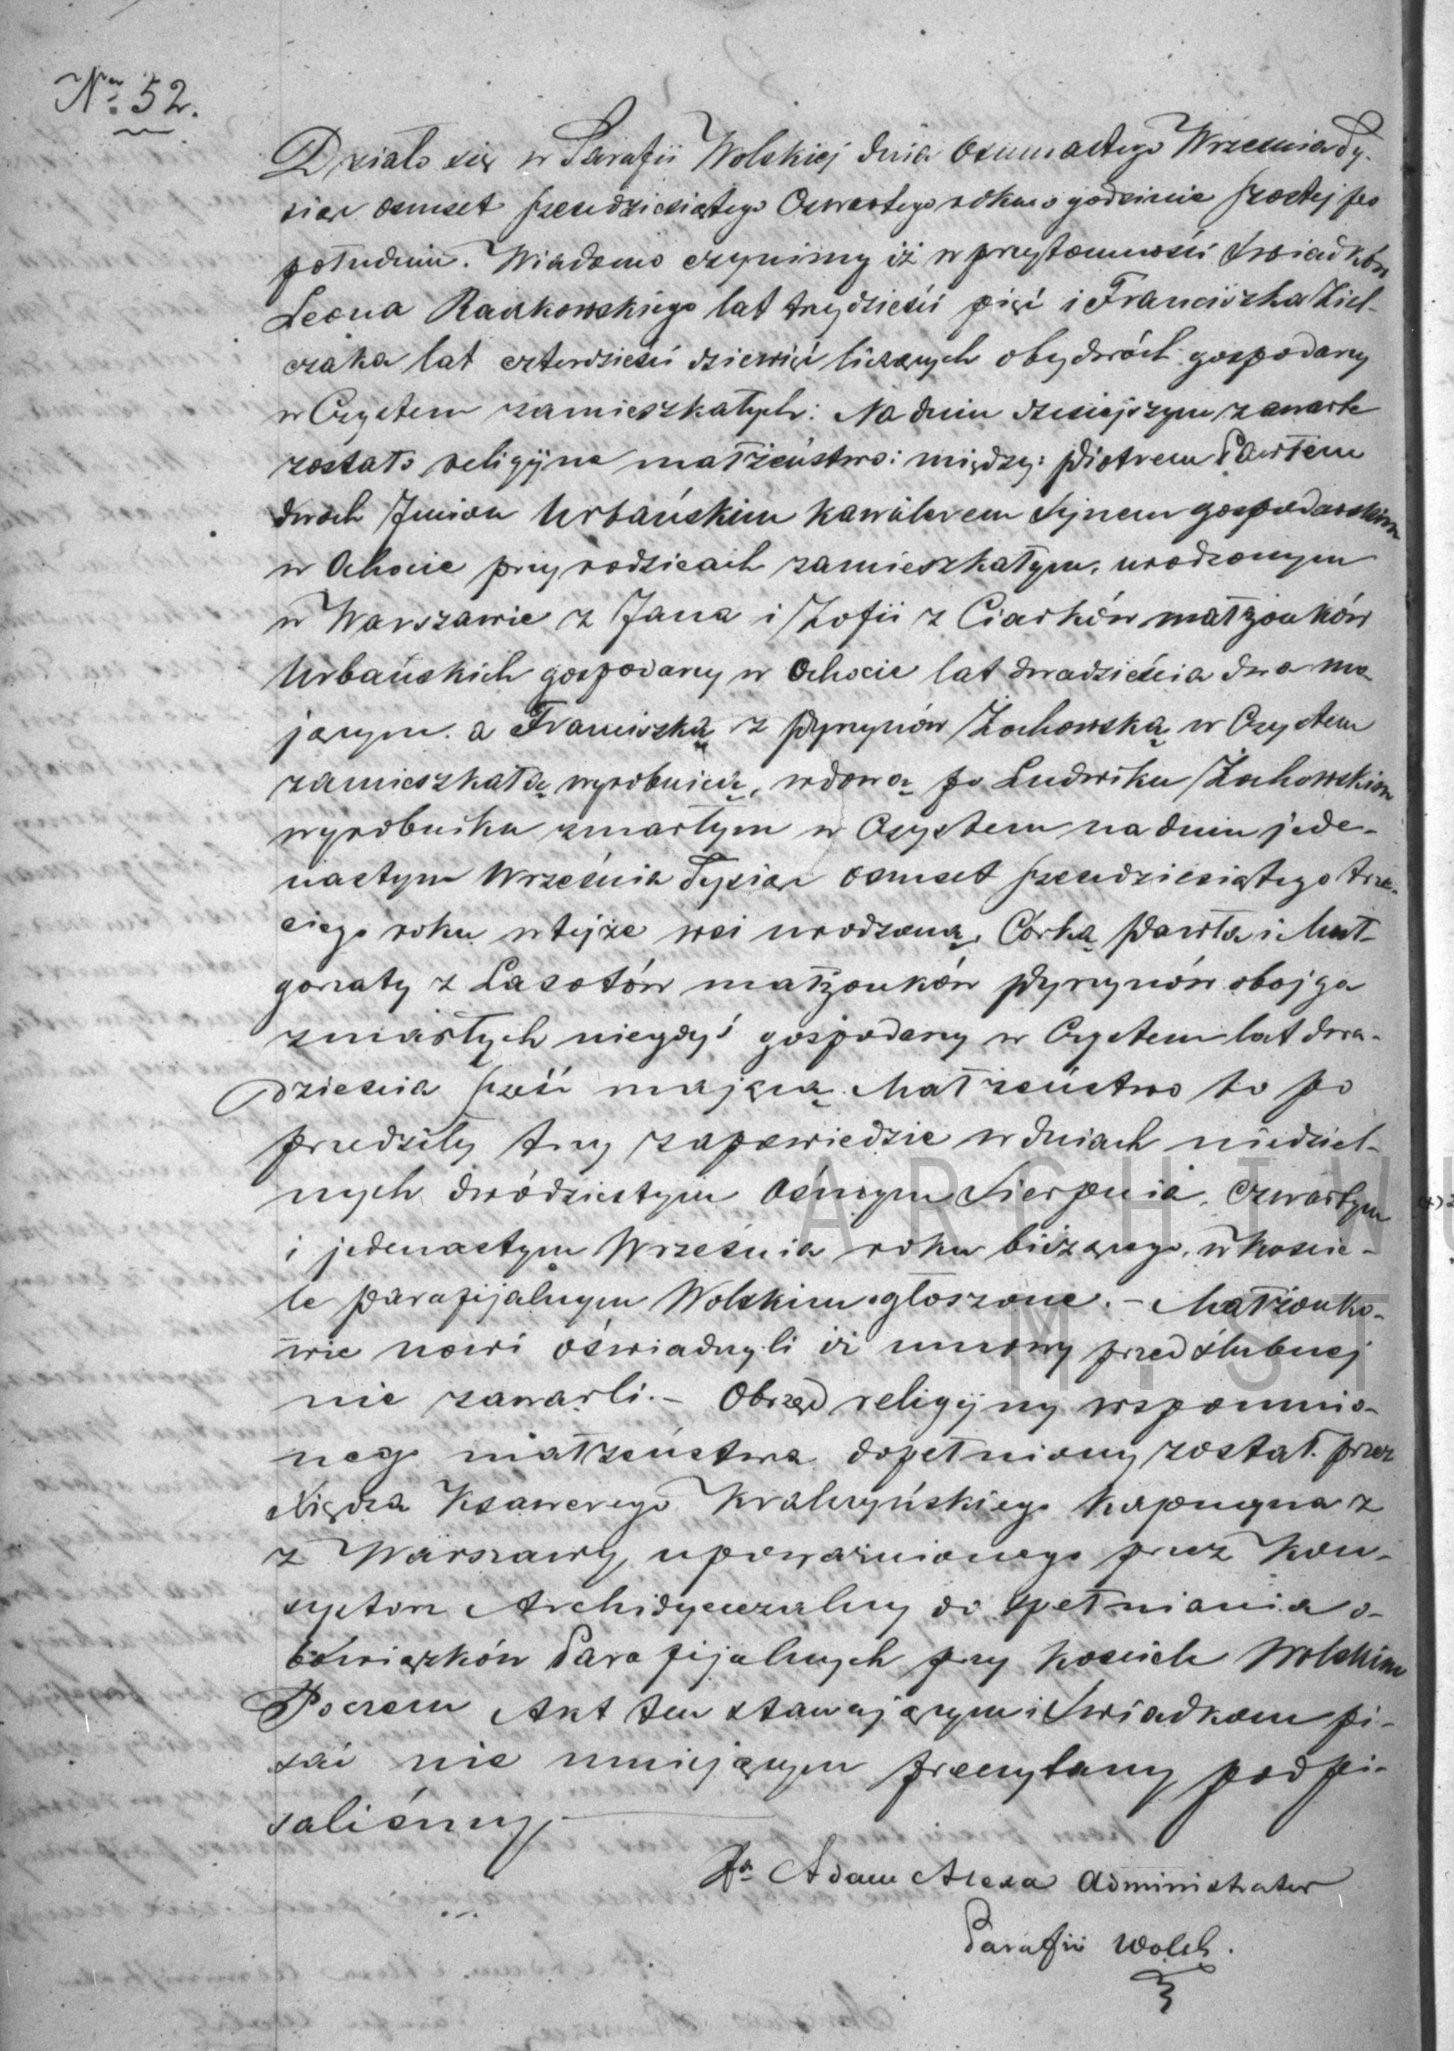 No 52.
Działo się w Parafii Wolskiej dnia osmnastego Wrzesnia Ty-
siąc osmset szesedziesiątego Czwartego roku o godzinie szostej po
południu. Wiadomo czynimy iż w przytomności świadków
Leona Radkowskiego lat trzydzieści pięć i Franciszka Ziel-
czaka lat czterdzieści dziewięć liczących obydwóch gospodarzy
w Czystem zamieszkałych: Na dniu dzisiejszym zawarte
zostało religijne małżeństwo: między: Piotrem Pawłem
dwóch Imion Urbańskim kawalerem synem gospodarskim
w Ochocie przy rodzicach zamieszkałym, urodzonym
w Warszawie z Jana i Zofii z Ciarków małżonków
Urbańskich gospodarzy w Ochocie lat dwadzieścia dwa ma-
jącym. a Franciszką z Pyrzynów Żochowską w Czystem
zamieszkałą wyrobnicą, wdową po Ludwiku Żochowskim
wyrobniku zmarłym w Czystem na dniu jede-
nastym Września Tysiąc osmset szesedziesiątego trze-
ciego roku w tejże wsi urodzoną, Córką Pawła i Mał-
gorzaty z Lasotów małżonków Pyrzynów obojga
zmarłych niegdyś gospodarzy w Czystem lat dwa-
dzieścia sześć mającą. Małżeństwo to po
przedziły trzy zapowiedzie w dniach niedziel-
nych dwódziestym Ósmym Sierpnia, czwartym
i jedenastym Września roku bieżącego, w koście-
le parafijalnym Wolskim ogłoszone. – Małżonko-
wie nowi oświadczyli iż umowy przedślubnej
nie zawarli. – Obrzęd religijny wspomnio-
nego małżeństwa dopełniony został przez
Xiędza Ksawerego Kapucyna z
z Warszawy, upoważnionego przez Kon-
systorz Archidyecezalny do spełniania o-
bowiązków Parafijalnych przy kościele Wolskim
Poczem Akt ten stawającym i Świadkom pi-
sać nie umiejącym przeczytany podpi-
saliśmy. –
Xs Adam Administrator
Parafii Wolsk.
ARCHIWU
M.ST